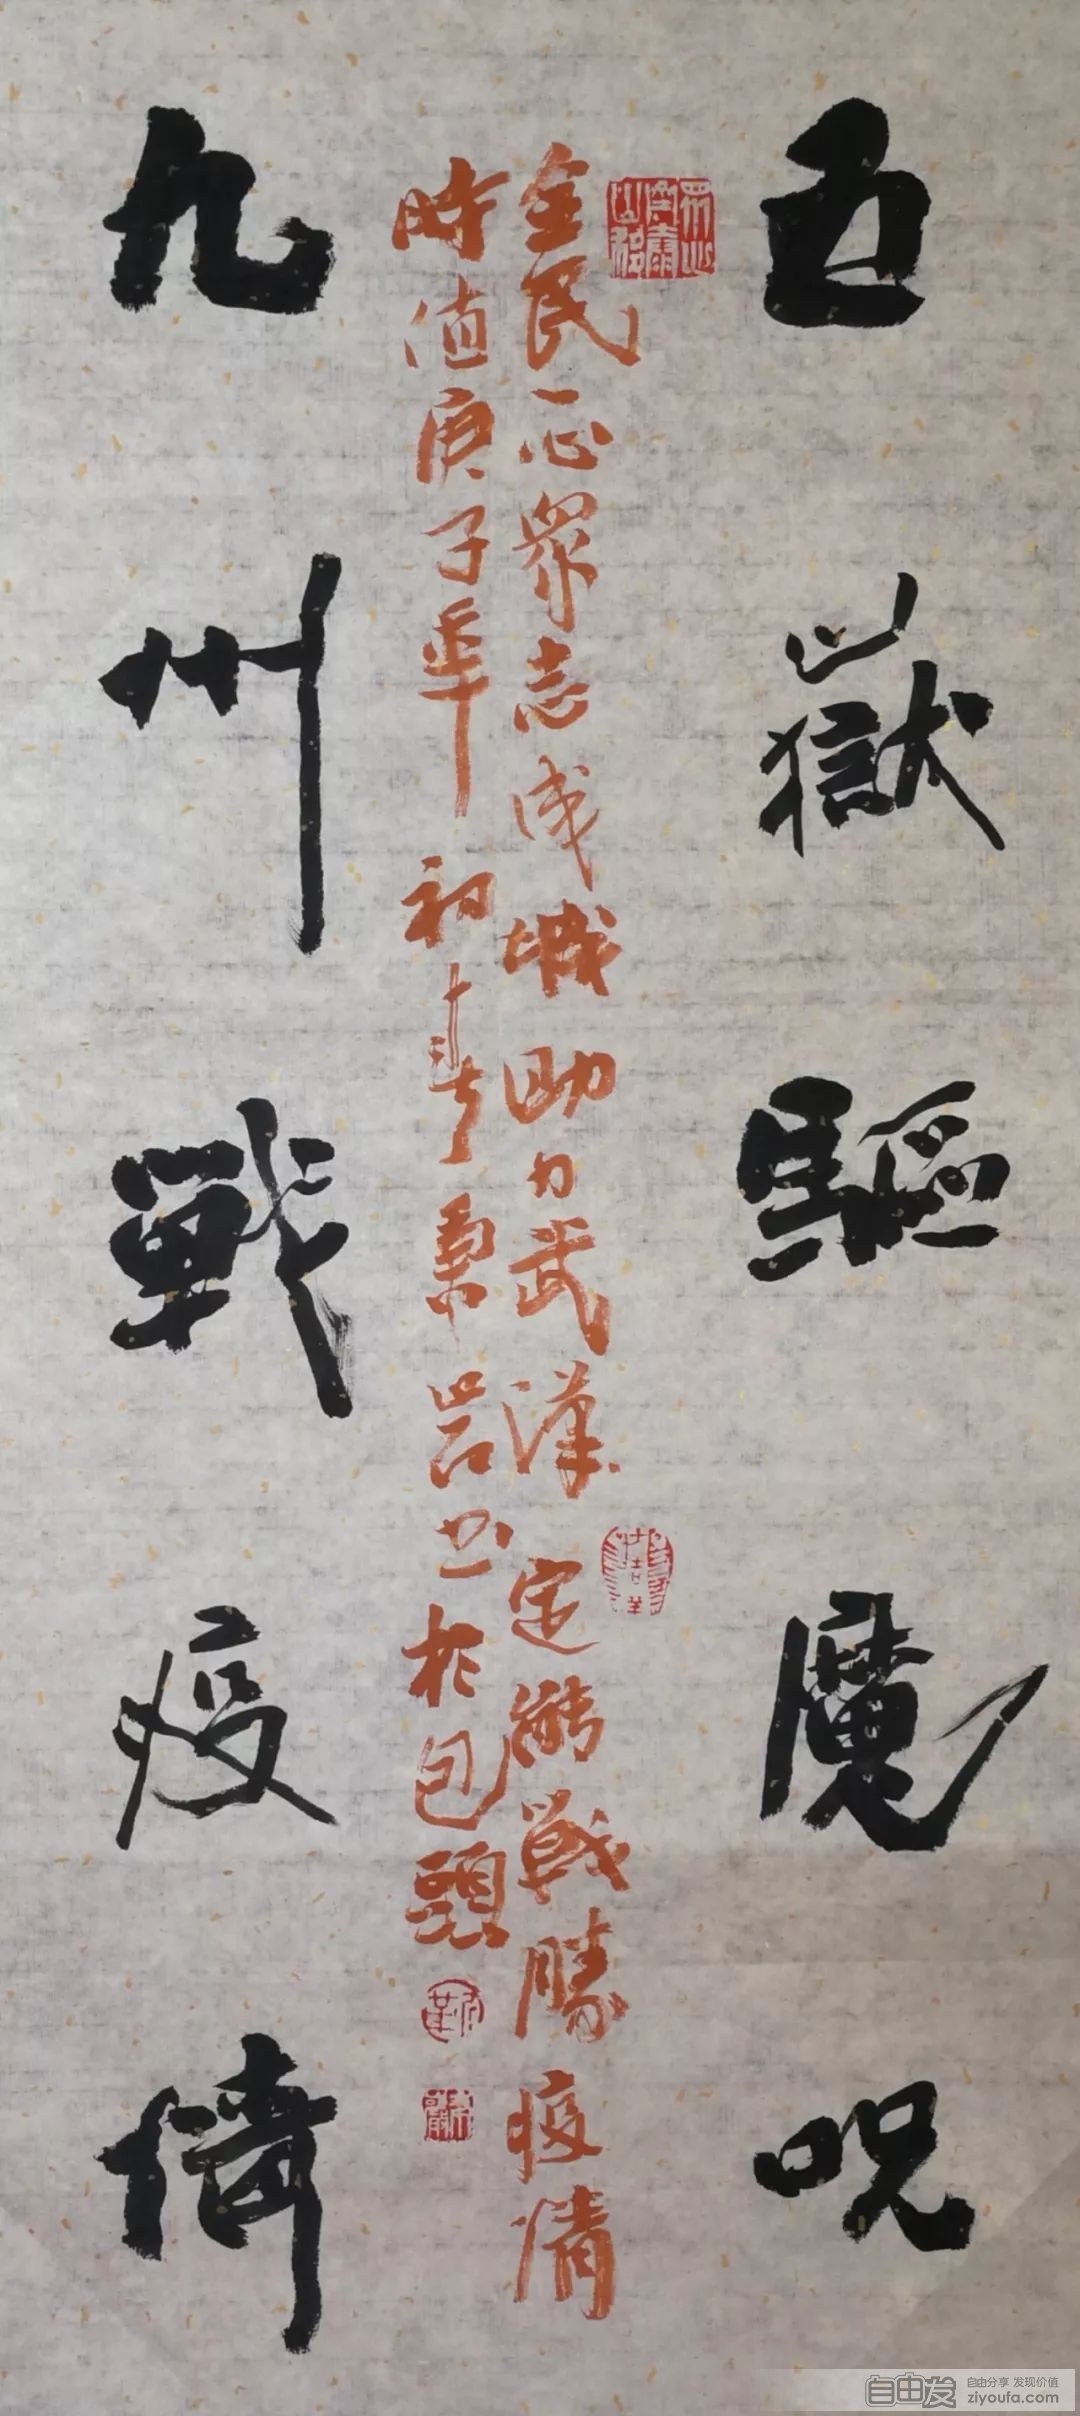 五嶽驅魔咒
全民一心眾志成城助力武漢定能戰勝疫情
時值庚子年初春岩书於包頭
九州戰疫情
自由发
自由分享 发现价值
ziyoufa.com